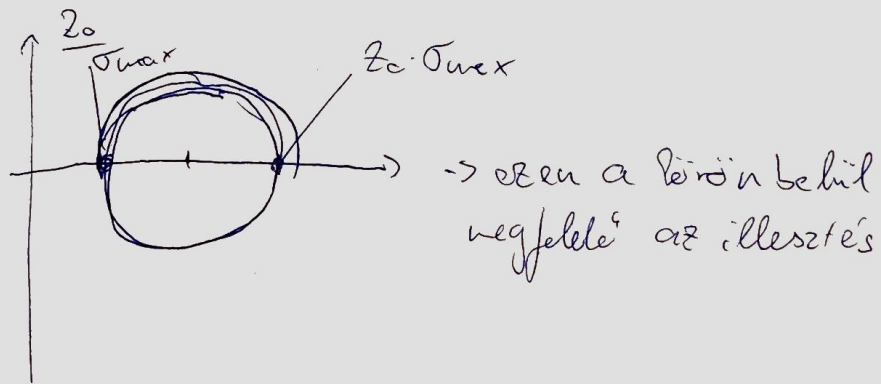 Z₀
σmax
Z₀·σmax
-> ezen a körön belül
megfelelő az illesztés